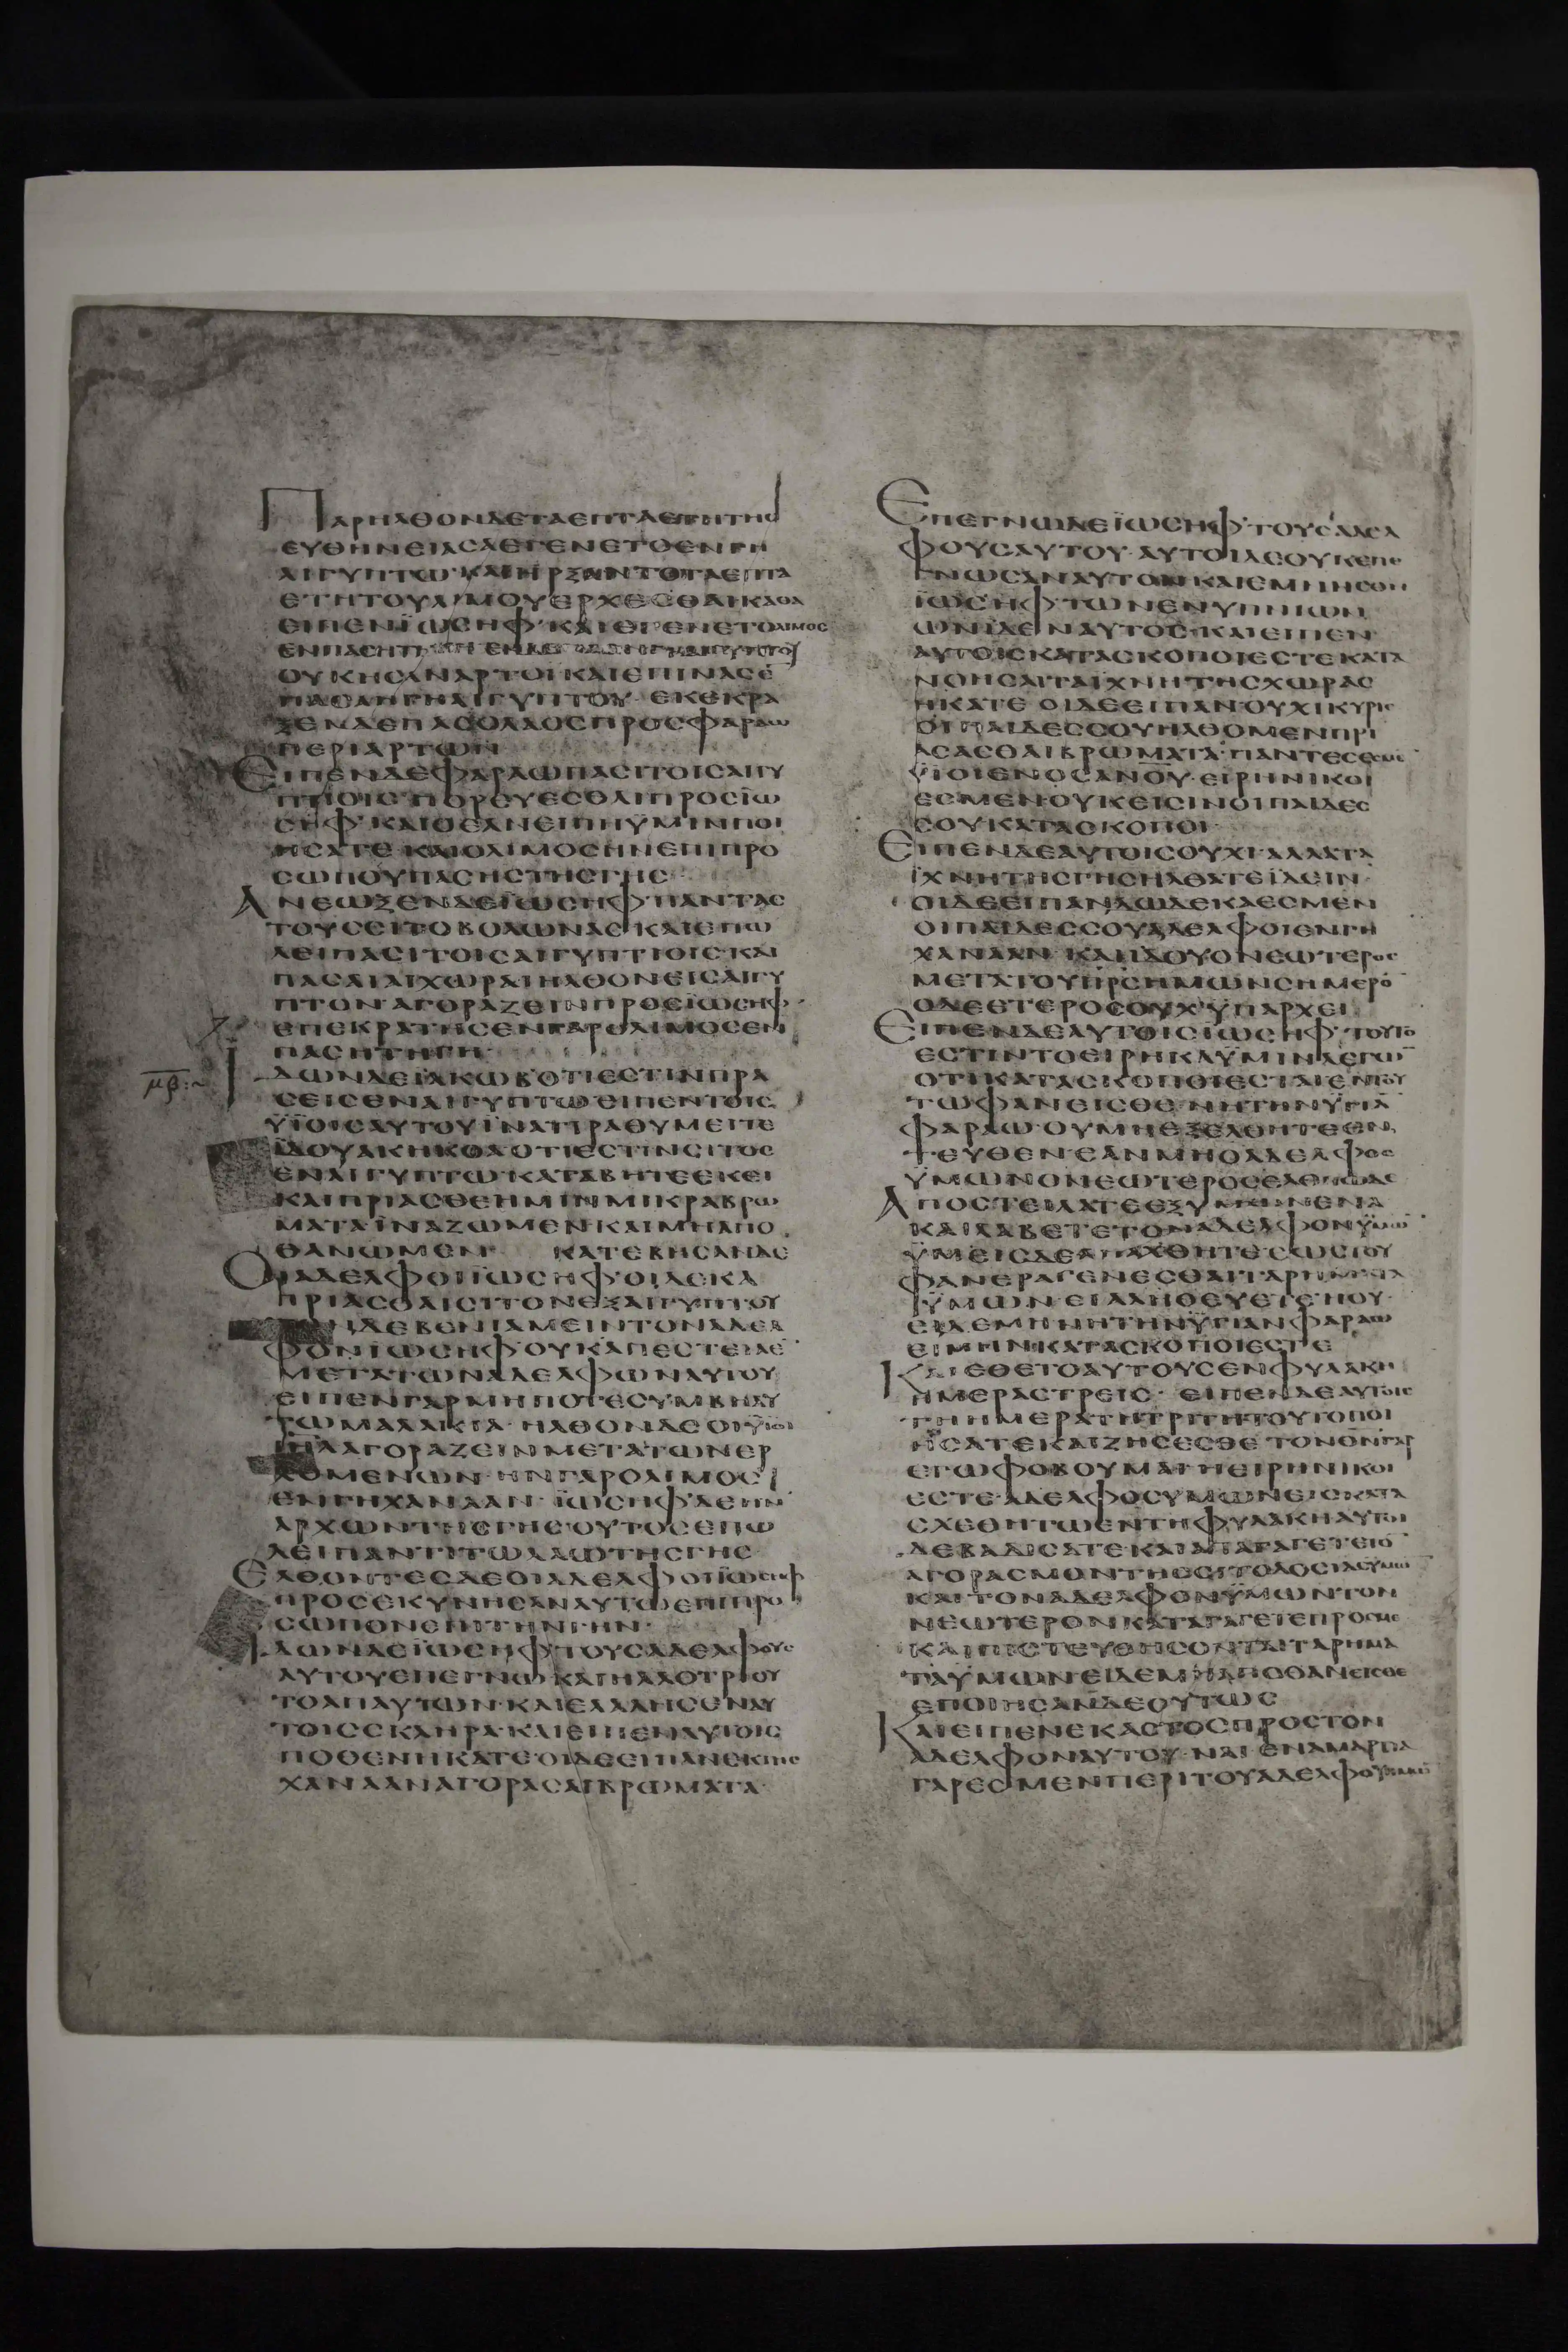 ΠΑΡΗΛΘΟΝΔΕΤΑΕΠΤΑΕΤΗΤΗϹ
ΕΥΘΗΝΕΙΑϹΑΕΓΕΝΕΤΟΕΝΓΗ
ΑΙΓΥΠΤΩ·ΚΑΙΗΡΞΑΝΤΟΤΑΕΠΤΑ
ΕΤΗΤΟΥΛΙΜΟΥΕΡΧΕϹΘΑΙΚΑΘΑ
ΕΙΠΕΝΪΩϹΗΦ·ΚΑΙΕΓΕΝΕΤΟΛΙΜΟϹ
ΕΝΠΑϹΗΤΗΓΗ
ΟΥΚΗϹΑΝΑΡΤΟΙΚΑΙΕΠΙΝΑϹΕ
ΠΑϹΑΗΓΗΑΙΓΥΠΤΟΥ·ΕΚΕΚΡΑ
ΞΕΝΔΕΠΑϹΟΛΑΟϹΠΡΟϹΦΑΡΑΩ
ΠΕΡΙΑΡΤΩΝ
ΕΙΠΕΝΔΕΦΑΡΑΩΠΑϹΙΤΟΙϹΑΙΓΥ
ΠΤΙΟΙϹ·ΠΟΡΕΥΕϹΘΑΙΠΡΟϹΪΩ
ϹΗΦ·ΚΑΙΟΕΑΝΕΙΠΗΫΜΙΝΠΟΙ
ΗϹΑΤΕ·ΚΑΙΟΛΙΜΟϹΗΝΕΠΙΠΡΟ
ϹΩΠΟΥΠΑϹΗϹΤΗϹΓΗϹ
ΑΝΕΩΞΕΝΔΕΪΩϹΗΦ·ΠΑΝΤΑϹ
ΤΟΥϹϹΙΤΟΒΟΛΩΝΑϹ·ΚΑΙΕΠΩ
ΛΕΙΠΑϹΙΤΟΙϹΑΙΓΥΠΤΙΟΙϹ·ΚΑΙ
ΠΑϹΑΙΑΙΧΩΡΑΙΗΛΘΟΝΕΙϹΑΙΓΥ
ΠΤΟΝΑΓΟΡΑΖΕΙΝΠΡΟϹΪΩϹΗΦ·
ΕΠΕΚΡΑΤΗϹΕΝΓΑΡΟΛΙΜΟϹΕΝ
ΠΑϹΗΤΗΓΗ·
μβ:~
ΙΔΩΝΔΕΪΑΚΩΒ·ΟΤΙΕϹΤΙΝΠΡΑ
ϹΕΙϹΕΝΑΙΓΥΠΤΩΕΙΠΕΝΤΟΙϹ
ΫΪΟΙϹΑΥΤΟΥΪΝΑΤΙΡΑΘΥΜΕΙΤΕ
ΙΔΟΥΑΚΗΚΟΑΟΤΙΕϹΤΙΝϹΙΤΟϹ
ΕΝΑΙΓΥΠΤΩ·ΚΑΤΑΒΗΤΕΕΚΕΙ
ΚΑΙΠΡΙΑϹΘΕΗΜΙΝΜΙΚΡΑΒΡΩ
ΜΑΤΑ·ΪΝΑΖΩΜΕΝΚΑΙΜΗΑΠΟ
ΘΑΝΩΜΕΝ· ΚΑΤΕΒΗϹΑΝΔΕ
ΟΙΑΔΕΛΦΟΙΪΩϹΗΦ·ΟΙΔΕΚΑ
ΠΡΙΑϹΘΑΙϹΙΤΟΝΕΞΑΙΓΥΠΤΟΥ
ΤΟΝΔΕΒΕΝΙΑΜΕΙΝΤΟΝΑΔΕΛ
ΦΟΝΪΩϹΗΦ·ΟΥΚΑΠΕϹΤΕΙΛΕ
ΜΕΤΑΤΩΝΑΔΕΛΦΩΝΑΥΤΟΥ
ΕΙΠΕΝΓΑΡΜΗΠΟΤΕϹΥΜΒΗΑΥ
ΤΩΜΑΛΑΚΙΑ·ΗΛΘΟΝΔΕΟΙΫΙΟΙ
ΙΗΛΑΓΟΡΑΖΕΙΝΜΕΤΑΤΩΝΕΡ
ΧΟΜΕΝΩΝ·ΗΝΓΑΡΟΛΙΜΟϹ
ΕΝΓΗΧΑΝΑΑΝ·ΪΩϹΗΦ·ΔΕΗΝ
ΑΡΧΩΝΤΗϹΓΗϹ·ΟΥΤΟϹΕΠΩ
ΛΕΙΠΑΝΤΙΤΩΛΑΩΤΗϹΓΗϹ
ΕΛΘΟΝΤΕϹΔΕΟΙΑΔΕΛΦΟΙΪΩϹΗΦ
ΠΡΟϹΕΚΥΝΗϹΑΝΑΥΤΩΕΠΙΠΡΟ
ϹΩΠΟΝΕΠΙΤΗΝΓΗΝ·
ΙΔΩΝΔΕΪΩϹΗΦ·ΤΟΥϹΑΔΕΛΦΟΥϹ
ΑΥΤΟΥΕΠΕΓΝΩ·ΚΑΙΗΛΛΟΤΡΙΟΥ
ΤΟΑΠΑΥΤΩΝ·ΚΑΙΕΛΑΛΗϹΕΝΑΥ
ΤΟΙϹϹΚΛΗΡΑ·ΚΑΙΕΙΠΕΝΑΥΤΟΙϹ
ΠΟΘΕΝΗΚΑΤΕ·ΟΙΔΕΕΙΠΑΝΕΚΓΗϹ
ΧΑΝΑΑΝΑΓΟΡΑϹΑΙΒΡΩΜΑΤΑ·
ΕΠΕΓΝΩΔΕΪΩϹΗΦ·ΤΟΥϹΑΔΕΛ
ΦΟΥϹΑΥΤΟΥ·ΑΥΤΟΙΔΕΟΥΚΕΠΕ
ΓΝΩϹΑΝΑΥΤΟΝΚΑΙΕΜΝΗϹΘΗ
ΪΩϹΗΦ·ΤΩΝΕΝΥΠΝΙΩΝ
ΩΝΙΔΕΝΑΥΤΟϹ·ΚΑΙΕΙΠΕΝ
ΑΥΤΟΙϹΚΑΤΑϹΚΟΠΟΙΕϹΤΕΚΑΤΑ
ΝΟΗϹΑΙΤΑΪΧΝΗΤΗϹΧΩΡΑϹ
ΗΚΑΤΕ·ΟΙΔΕΕΙΠΑΝ·ΟΥΧΙΚΥΡΙΕ
ΟΙΠΑΙΔΕϹϹΟΥΗΛΘΟΜΕΝΠΡΙ
ΑϹΑϹΘΑΙΒΡΩΜΑΤΑ·ΠΑΝΤΕϹΕϹΜΕ
ΫΙΟΙΕΝΟϹΑΝΟΥ·ΕΙΡΗΝΙΚΟΙ
ΕϹΜΕΝ·ΟΥΚΕΙϹΙΝΟΙΠΑΙΔΕϹ
ϹΟΥΚΑΤΑϹΚΟΠΟΙ·
ΕΙΠΕΝΔΕΑΥΤΟΙϹΟΥΧΙ·ΑΛΛΑΤΑ
ΪΧΝΗΤΗϹΓΗϹΗΛΘΑΤΕΪΔΕΙΝ·
ΟΙΔΕΕΙΠΑΝΔΩΔΕΚΑΕϹΜΕΝ
ΟΙΠΑΙΔΕϹϹΟΥΑΔΕΛΦΟΙΕΝΓΗ
ΧΑΝΑΑΝ·ΚΑΙΙΔΟΥΟΝΕΩΤΕΡΟϹ
ΜΕΤΑΤΟΥΠΡϹΗΜΩΝϹΗΜΕΡΟ
ΟΔΕΕΤΕΡΟϹΟΥΧΫΠΑΡΧΕΙ
ΕΙΠΕΝΔΕΑΥΤΟΙϹΪΩϹΗΦ·ΤΟΥΤΟ
ΕϹΤΙΝΤΟΕΙΡΗΚΑΫΜΙΝΛΕΓΩ
ΟΤΙΚΑΤΑϹΚΟΠΟΙΕϹΤΑΙΕΝΤΟΥ
ΤΩΦΑΝΕΙϹΘΕ·ΝΗΤΗΝΫΓΙΑ
ΦΑΡΑΩ·ΟΥΜΗΕΞΕΛΘΗΤΕΕΝ
ΤΕΥΘΕΝ·ΕΑΝΜΗΟΑΔΕΛΦΟϹ
ΫΜΩΝΟΝΕΩΤΕΡΟϹΕΛΘΗΩΔΕ
ΑΠΟϹΤΕΙΛΑΤΕΕΞΥΜΩΝΕΝΑ
ΚΑΙΛΑΒΕΤΕΤΟΝΑΔΕΛΦΟΝΫΜΩ
ΫΜΕΙϹΔΕΑΠΑΧΘΗΤΕΕΩϹΤΟΥ
ΦΑΝΕΡΑΓΕΝΕϹΘΑΙΤΑΡΗΜΑΤΑ
ΫΜΩΝ·ΕΙΑΛΗΘΕΥΕΤΕΗΟΥ·
ΕΙΔΕΜΗΝΗΤΗΝΫΓΙΑΝΦΑΡΑΩ
ΕΙΜΗΝΚΑΤΑϹΚΟΠΟΙΕϹΤΕ
ΚΑΙΕΘΕΤΟΑΥΤΟΥϹΕΝΦΥΛΑΚΗ
ΗΜΕΡΑϹΤΡΕΙϹ· ΕΙΠΕΝΔΕΑΥΤΟΙϹ
ΤΗΗΜΕΡΑΤΗΤΡΙΤΗΤΟΥΤΟΠΟΙ
ΗϹΑΤΕΚΑΙΖΗϹΕϹΘΕ·ΤΟΝΘΝΓΑΡ
ΕΓΩΦΟΒΟΥΜΑΙ·ΕΙΕΙΡΗΝΙΚΟΙ
ΕϹΤΕ·ΑΔΕΛΦΟϹΥΜΩΝΕΙϹΚΑΤΑ
ϹΧΕΘΗΤΩΕΝΤΗΦΥΛΑΚΗΑΥΤΟΙ
ΔΕΒΑΔΙϹΑΤΕ·ΚΑΙΑΠΑΓΑΓΕΤΕΤΟ
ΑΓΟΡΑϹΜΟΝΤΗϹϹΙΤΟΔΟϹΙΑϹΫΜΩ
ΚΑΙΤΟΝΑΔΕΛΦΟΝΫΜΩΝΤΟΝ
ΝΕΩΤΕΡΟΝΚΑΤΑΓΑΓΕΤΕΠΡΟϹΜΕ
ΚΑΙΠΙϹΤΕΥΘΗϹΟΝΤΑΙΤΑΡΗΜΑ
ΤΑΫΜΩΝ·ΕΙΔΕΜΗΑΠΟΘΑΝΕΙϹΘΕ
ΕΠΟΙΗϹΑΝΔΕΟΥΤΩϹ
ΚΑΙΕΙΠΕΝΕΚΑϹΤΟϹΠΡΟϹΤΟΝ
ΑΔΕΛΦΟΝΑΥΤΟΥ·ΝΑΙΕΝΑΜΑΡΤΙΑ
ΓΑΡΕϹΜΕΝΠΕΡΙΤΟΥΑΔΕΛΦΟΥΗΜΩ